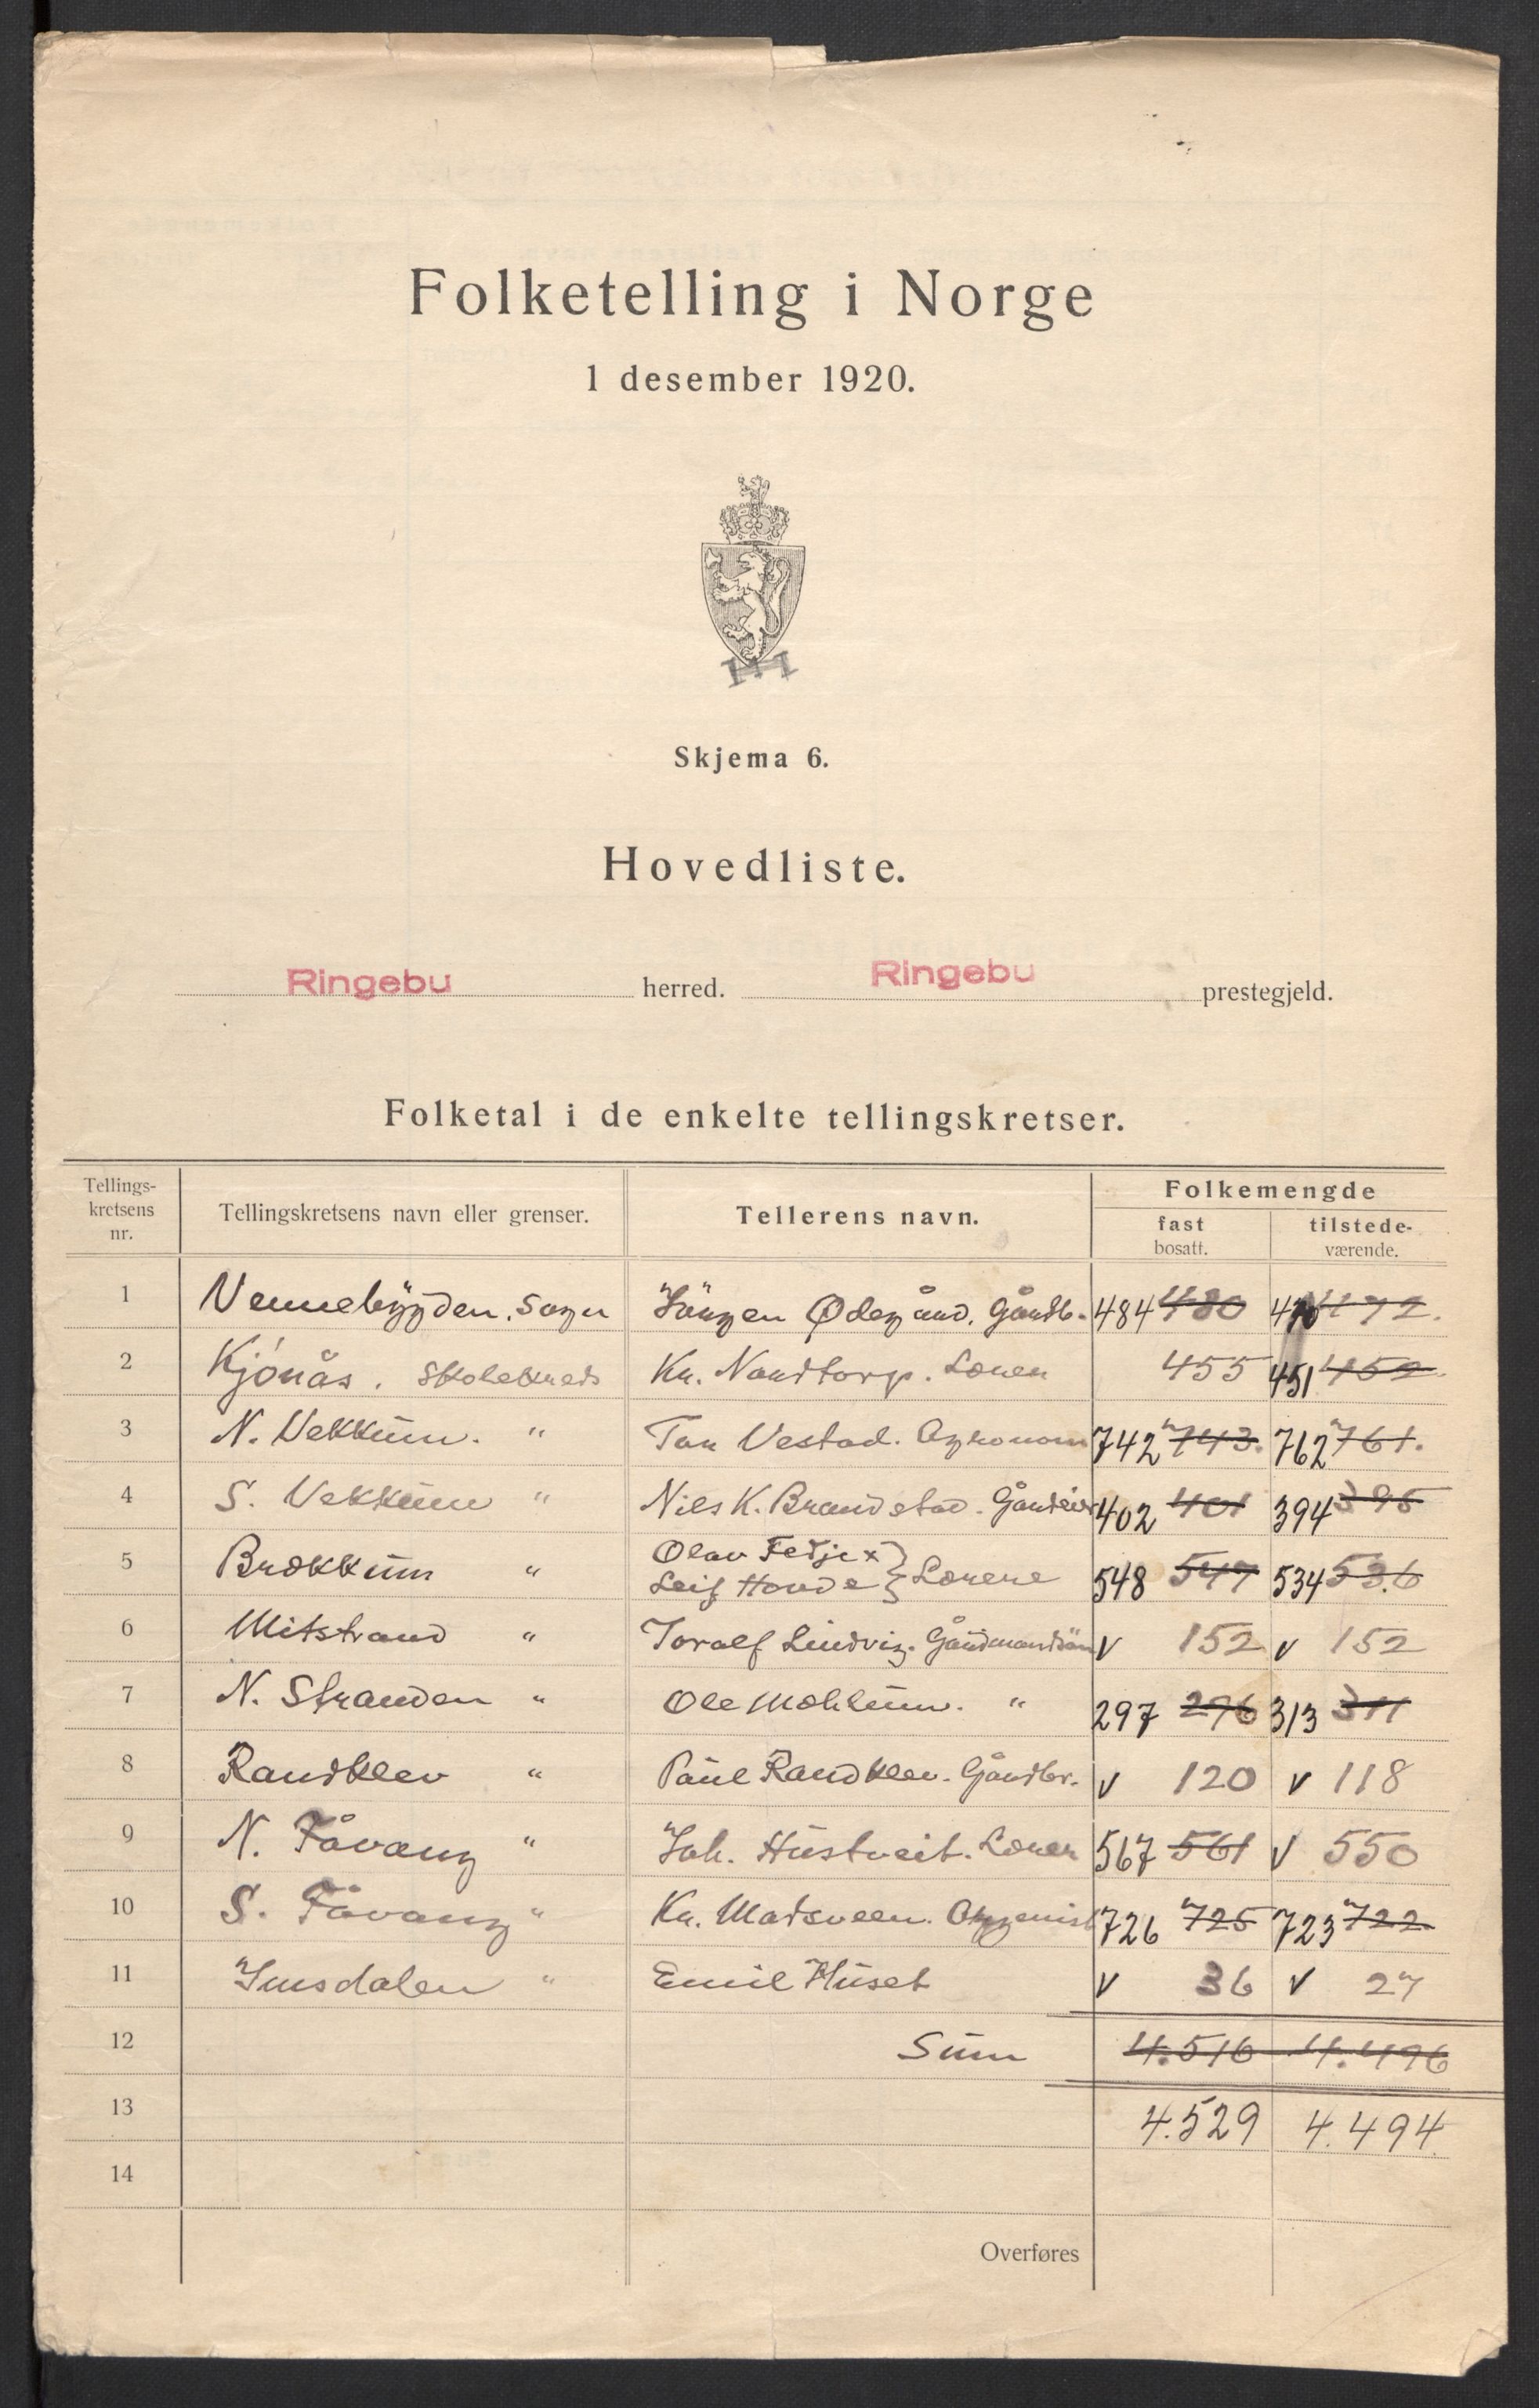 Folketelling i Norge
1 desember 1920.
Skjema 6.
Hovedliste.
Ringebu herred. Ringebu prestegjeld.
Folketal i de enkelte tellingskretser.
Tellings-kretsens nr. Tellingskretsens navn eller grenser. Tellerens navn. Folkemengde
fast bosatt. tilstede-værende.
1 Vennebygden. Sogn Jørgen Ødegård. Gårdb. 484 480 472.
2 Kjønås. Skolekreds Kr. Nordtorp. Lærer 455 451 452
3 N. Vekkum. " Tor Vestad. Agronom 742 743. 762 761.
4 S. Vekkum " Nils K. Brandstad. 402 401 394 395
5 Brækkum " Olav Fedje x
Leif Hovde } Lærere 548 547 534 536
6 Mitstrand " Toralf Lindvig. Gårdmandsøn v 152 v 152
7 N. Stranden " Ole Mæhlum. " 297 296 313 311
8 Randklev " Paul Randklev. Gårdbr. v 120 v 118
9 N. Fåvang " Joh. Hustveit. Lærer 567 561 v 550
10 S. Fåvang " Kr. Madsveen. 726 725 723 722
11 Imsdalen " Emil Huset v 36 v 27
12 Sum 4.516 4.496
13 4.529 4.494
14
Overføres